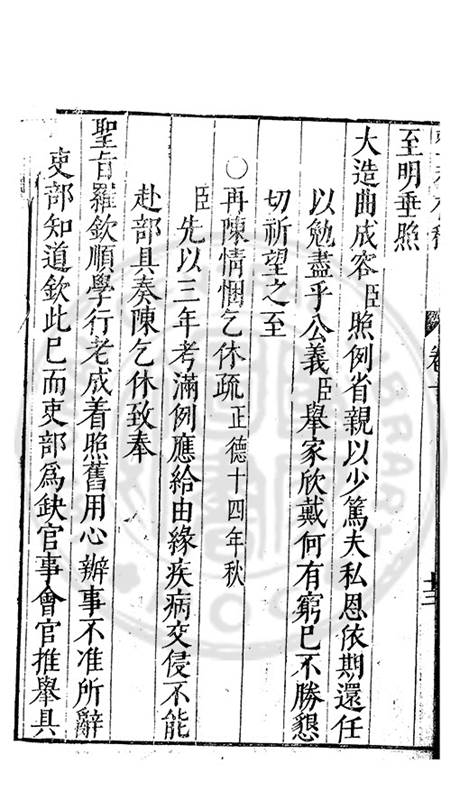 至明垂照
大造曲成容臣照例省親以少篤夫私恩依期還任
以勉盡乎公義臣舉家欣戴何有窮巳不勝懇
切祈望之至
○再陳情悃乞休疏正德十四年秋
臣先以三年考滿例應給由緣疾病交侵不能
赴部具奏陳乞休致奉
聖旨羅欽順學行老成着照舊用心辦事不准所辭
吏部知道欽此巳而吏部爲缺官事會官推舉具
卷一
十三